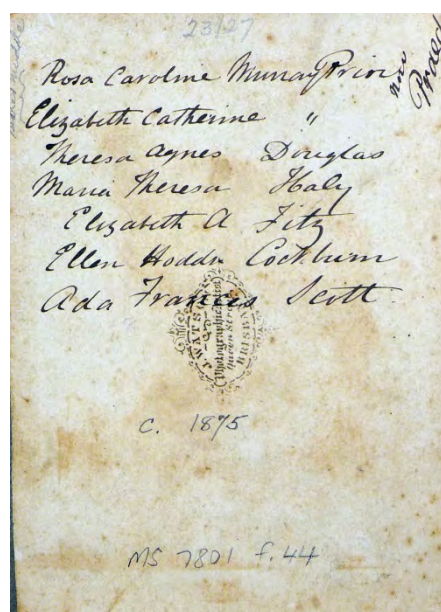 23/27
Rosa Caroline Murray Prior
née Praed
Elizabeth Catherine "
Theresa Agnes Douglas
Maria Theresa Haly
Elizabeth A Fitz
Ellen Cockburn
Ada Frances Scott
J. WATSON
Photographic Artist
Queen Street
BRISBANE
c. 1875
MS 7801 f. 44